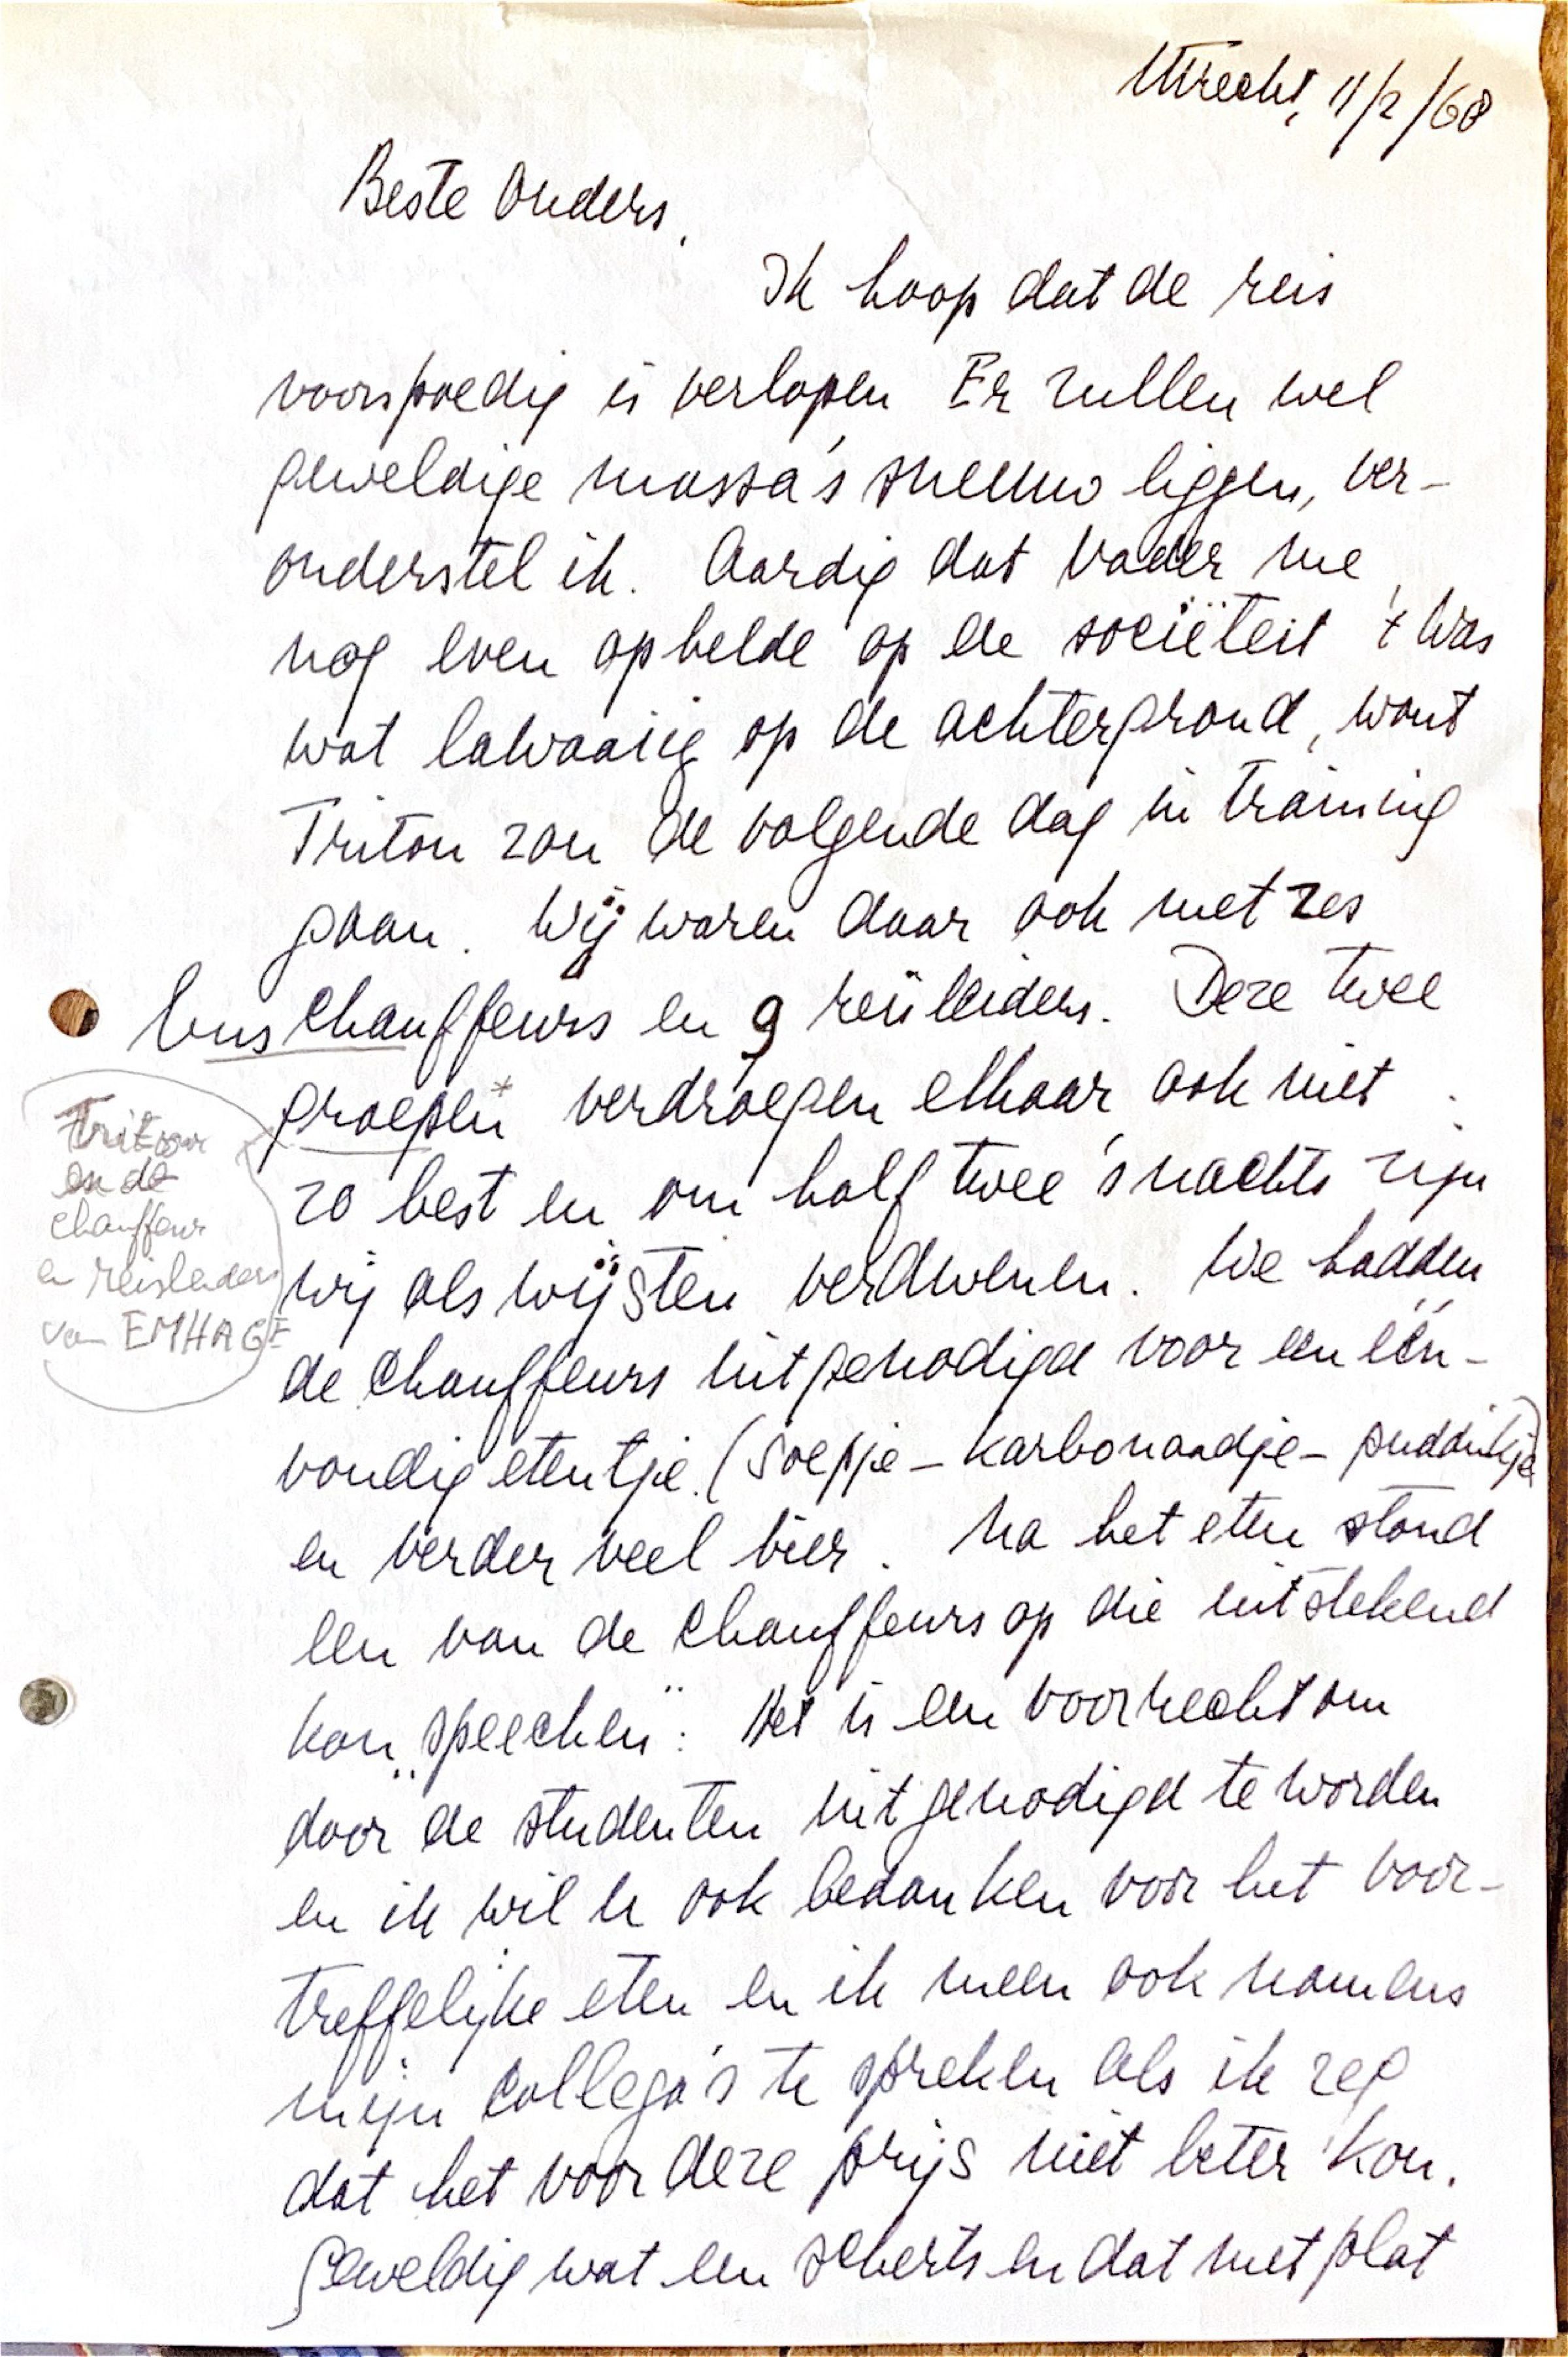 Utrecht, 11/2/68
Beste Ouders,
Ik hoop dat de reis
voorspoedig is verlopen Er zullen wel
geweldige massa's sneeuw liggen, ver-
onderstel ik. Aardig dat Vader me
nog even opbelde op de sociëteit 't Was
wat lawaaiig op de achtergrond, want
Triton zou de volgende dag in training
gaan. Wij waren daar ook met zes
bus chauffeurs en 9 reisleiders. Deze twee
groepen* verdroegen elkaar ook niet
zo best en om half twee 's nachts zijn
wij als wijsten verdwenen. We hadden
de chauffeurs uitgenodigd voor een één-
voudig etentje. (soepje - karbonaadje - puddinkje)
en verder veel bier. Na het eten stond
een van de chauffeurs op die uitstekend
kon „speechen": Het is een voorrecht om
door de studenten uitgenodigd te worden
en ik wil u ook bedanken voor het voor-
treffelijke eten en ik meen ook namens
mijn collega's te spreken als ik zeg
dat het voor deze prijs niet beter kon.
Geweldig wat een scherts en dat met plat
Triton
en de
chauffeur
en reisleiders
van EMHAGE